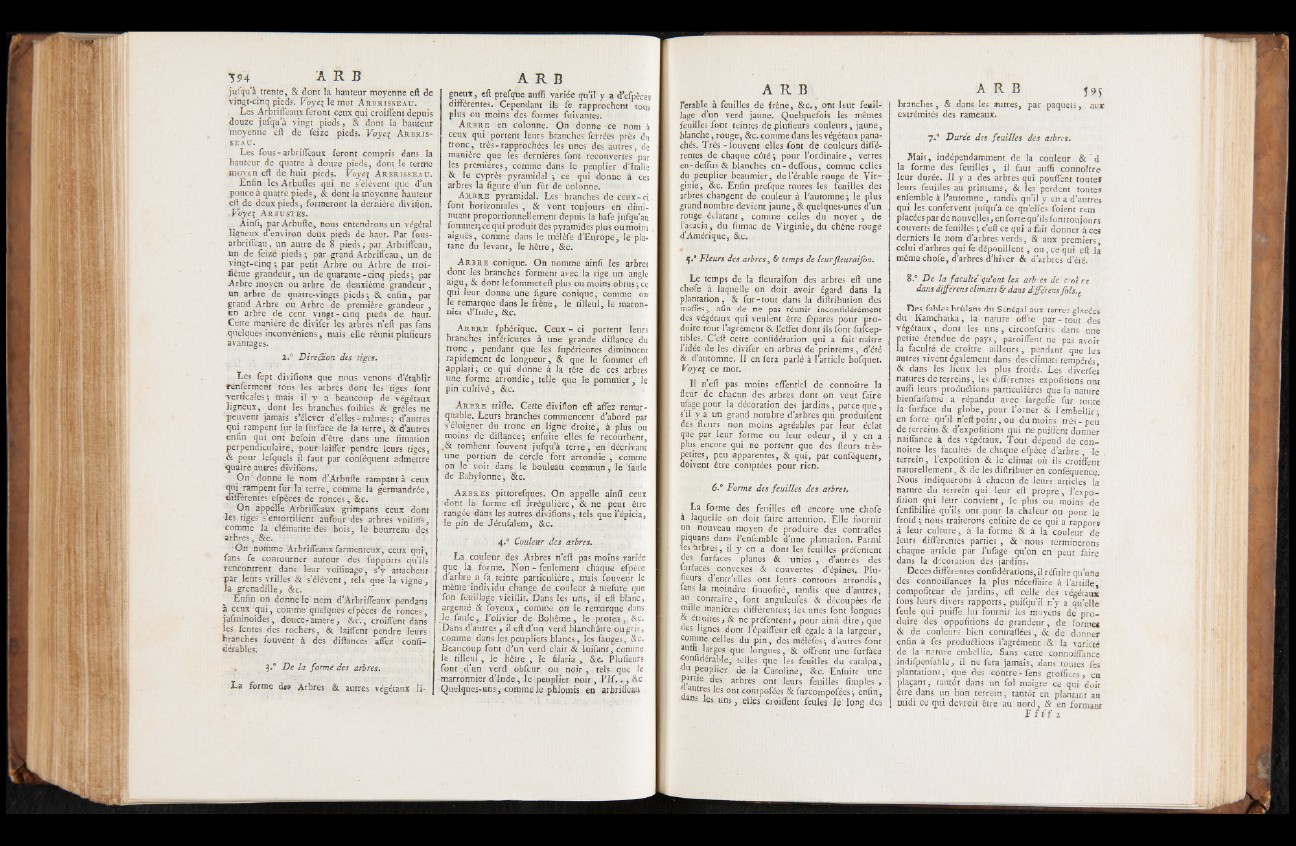 594 A R B
jusqu'à trente, & dont la hauteur moyenne est de
vingt-cinq pieds. Voyez le mot ARBRISSEAU.
Les Arbrisseaux feront ceux qui croissent depuis
douze jusqu'à vingt pieds, & dont la hauteur
moyenne est de seize pieds. Voyez ARBRIS-
SEAU.
Les sous-arbrisseaux seront compris dans la
hauteur de quatre à douze pieds, dont le terme
moyen est de huit pieds. Voyez ARBRISSEAU.
Enfin les Arbustes qui ne s'élèvent que d'un
pouce à quatre pieds, & dont la moyenne hauteur
est de deux pieds, formeront la dernière division.
Voyez ARBUSTES.
Ainsi, par Arbuste, nous entendrons un végétal
ligneux d'environ deux pieds de haut. Par sous-
arbrisseau, un autre de 8 pieds; par Arbrisseau,
un de seize pieds; par grand Arbrisseau, un de
vingt-cinq; par petit Arbre ou Arbre de troi-
sième grandeur, un de quarante-cinq pieds; par
Arbre moyen ou arbre de deuxième grandeur,
un arbre de quatre-vingts pieds; & enfin, par
grand Arbre ou Arbre de première grandeur,
un arbre de cent vingt-cinq pieds de haut.
Cette manière de diviser les arbres n'est pas sans
quelques inconvéniens, mais elle réunit plusieurs
avantages.
2.° Direction des tiges.
Les sept divisions que nous venons d'établir
renferment tous les arbres dont les tiges sont
verticales; mais il y a beaucoup de végétaux
ligneux, dont les branches foibles & grêles ne
peuvent jamais s'élever d'elles-mêmes; d'autres
qui rampent sur la surface de la terre, & d'autres
enfin qui ont besoin d'être dans une situation
perpendiculaire, pour laisser pendre leurs tiges,
& pour lesquels il faut par conséquent admettre
quatre autres divisions.
On donne le nom d'Arbuste rampant à ceux
qui rampent sur la terre, comme la germandrée,
différentes espèces de ronces, &c.
On appelle Arbrisseaux grimpans ceux dont
les tiges s'entortillent autour des arbres voisins,
comme la clématite des bois, le bourreau des
arbres, &c.
On nomme Arbrisseaux sarmenteux, ceux qui,
sans se contourner autour des supports qu'ils
rencontrent dans leur voisinage, s'y attachent
par leurs vrilles & s'élèvent, tels que la vigne,
la grenadille, &c.
Enfin on donne le nom d'Arbrisseaux pendans
à ceux qui, comme quelques espèces de ronces,
jasminoïdes, douce-amère, &c., croissent dans
les fentes des rochers, & laissent pendre leurs
branches souvent à des distances assez consi-
dérables.
3.° De la forme des arbres.
La forme des Arbres & autres végétaux li-
A R B
gneux, est presque aussi variée qu'il y a d'espèces
différentes. Cependant ils se rapprochent tous
plus ou moins des formes suivantes.
ARBRE en colonne. On donne ce nom à
ceux qui portent leurs branches serrées près du
tronc, très-rapprochées les unes des autres, de
manière que les dernières sont recouvertes par
les premières, comme dans le peuplier d'Italie
& le cyprès pyramidal; ce qui donne à ces
arbres la figure d'un fût de colonne.
ARBRE pyramidal. Les branches de ceux-ci
sont horizontales, & vont toujours en dimi-
nuant proportionnellement depuis la base jusqu'au
sommet; ce qui produit des pyramides plus ou moins
aiguës, comme dans le mélèse d'Europe, le pla-
tane du levant, le hêtre, &c.
ARBRE conique. On nomme ainsi les arbres
dont les branches forment avec la tige un angle
aigu, & dont le sommet est plus ou moins obtus; ce
qui leur donne une figure conique, comme on
le remarque dans le frêne, le tilleul, le maron-
nier d'Inde, &c.
ARBRE sphérique. Ceux-ci portent leurs
branches inférieures à une grande distance du
tronc, pendant que les supérieures diminuent
rapidement de longueur, & que le sommet est
applati; ce qui donne à la tête de ces arbres
une forme arrondie, telle que le pommier, le
pin cultivé, &c.
ARBRE triste. Cette division est assez remar-
quable. Leurs branches commencent d'abord par
s'éloigner du tronc en ligne droite, à plus ou
moins de distance; ensuite elles se recourbent,
& tombent souvent jusqu'à terre, en décrivant
une portion de cercle fort arrondie, comme
on le voit dans le bouleau commun, le saule
de Babylonne, &c.
ARBRES pittoresques. On appelle ainsi ceux
dont la forme est irrégulière, & ne peut être
rangée dans les autres divisions, tels que l'épicia,
le pin de Jérusalem, &c.
4.° Couleur des arbres.
La couleur des Arbres n'est pas moins variée
que la forme. Non-seulement chaque espèce
d'arbre a sa teinte particulière, mais souvent le
même individu change de couleur à mesure que
son feuillage vieillit. Dans les uns, il est blanc,
argenté & soyeux, comme on le remarque dans
le saule, l'olivier de Bohême, le protea, &c.
Dans d'autres, il est d'un verd blanchâtre ou gris,
comme dans les peupliers blancs, les sauges, &c.
Beaucoup sont d'un verd clair & luisant, comme
le tilleul, le hêtre, le filaria, &c. Plusieurs
sont d'un verd obscur ou noir, tels que le
marronnier d'Inde, le peuplier noir, l'If..., &c
Quelques-uns, comme le phlomis en arbrisseau
A R B
l'erable à feuilles de frêne, &c., ont leur feuil-
lage d'un verd jaune. Quelquefois les mêmes
feuilles sont teintes de plusieurs couleurs, jaune,
blanche, rouge, &c. comme dans les végétaux pana-
chés. Très-souvent elles sont de couleurs diffé-
rentes de chaque côté; pour l'ordinaire, vertes
en-dessus & blanches en-dessous, comme celles
du peuplier beaumier, de l'érable rouge de Vir-
ginie, &c. Enfin presque toutes les feuilles des
arbres changent de couleur à l'automne; le plus
grand nombre devient jaune, & quelques-unes d'un
rouge éclatant, comme celles du noyer, de
l'acacia, du sumac de Virginie, du chêne rouge
d'Amérique, &c.
5.° Fleurs des arbres, & temps de leur fleuraison.
Le temps de la fleuraison des arbres est une
chose à laquelle on doit avoir égard dans la
plantation, & sur-tout dans la distribution des
masses, afin de ne pas réunir inconsidérément
des végétaux qui veulent être séparés pour pro-
duire tout l'agrément & l'effet dont ils sont suscep-
tibles. C'est cette considération qui a fait naître
l'idée de les diviser en arbres de printems, d'été
& d'automne. Il en sera parlé à l'article bosquet.
Voyez ce mot.
Il n'est pas moins essentiel de connoître la
fleur de chacun des arbres dont on veut faire
usage pour la décoration des jardins, parce que,
s'il y a un grand nombre d'arbres qui produisent
des fleurs non moins agréables par leur éclat
que par leur forme ou leur odeur, il y en a
plus encore qui ne portent que des fleurs très-
petites, peu apparentes, & qui, par conséquent,
doivent être comptées pour rien.
6.° Forme des feuilles des arbres.
La forme des feuilles est encore une chose
à laquelle on doit faire attention. Elle fournir
un nouveau moyen de produire des contrastes
piquans dans l'ensemble d'une plantation. Parmi
les arbres, il y en a dont les feuilles présentent
des surfaces planes & unies, d'autres des
surfaces convexes & couvertes d'épines. Plu-
sieurs d'entr'elles ont leurs contours arrondis,
sans la moindre sinuosité, tandis que d'autres,
au contraire, sont anguleuses & découpées de
mille manières différentes; les unes sont longues
& étroites, & ne présentent, pour ainsi dire, que
des lignes dont l'épaisseur est égale à la largeur,
comme celles du pin, des mélèses, d'autres sont
aussi larges que longues, & offrent une surface
considérable, telles que les feuilles du catalpa,
du peuplier de la Caroline, &c. Ensuite une
partie des arbres ont leurs feuilles simples,
d'autres les ont composées & surcomposées; enfin,
dans les uns, elles croissent seules le long des
A R B 595
branches, & dans les autres, par paquets, aux
extrémités des rameaux.
7.° Durée des feuilles des arbres.
Mais, indépendamment de la couleur & d
la forme des feuilles, il faut aussi connoître
leur durée. Il y a des arbres qui poussent toutes
leurs feuilles au printems, & les perdent toutes
ensemble à l'automne, tandis qu'il y en a d'autres
qui les conservent jusqu'à ce qu'elles soient rem
placées par de nouvelles, en sorte qu'ils sont toujours
couverts de feuilles; c'est ce qui a fait donner à ces
derniers le nom d'arbres verds, & aux premiers,
celui d'arbres qui se dépouillent, ou, ce qui est la
même chose, d'arbres d'hiver & d'arbres d'été.
8.° De la faculté qu'ont les arbres de croître
dans différens climats & dans différens sols.
Des sables brûlans du Sénégal aux terres glacées
du Kamchatka, la nature offre par-tout des
végétaux, dont les uns, circonscrits dans une
petite étendue de pays, paroissent ne pas avoir
la faculté de croître ailleurs, pendant que les
autres vivent également dans des climats tempérés,
& dans les lieux les plus froids. Les diverses
natures de terreins, les différentes expositions ont
aussi leurs productions particulières que la nature
bienfaisante a répandu avec largesse sur toute
la surface du globe, pour l'orner & l'embellir;
en sorte qu'il n'est point, ou du moins très-peu
de terreins & d'expositions qui ne puissent donner
naissance à des végétaux. Tout dépend de con-
noître les facultés de chaque espèce d'arbre, le
terrein, l'exposition & le climat où ils croissent
naturellement, & de les distribuer en conséquence.
Nous indiquerons à chacun de leurs articles la
nature du terrein qui leur est propre, l'expo-
sition qui leur convient, le plus ou moins de
sensibilité qu'ils ont pour la chaleur ou pour le
froid; nous traiterons ensuite de ce qui a rapport
à leur culture, à la forme & à la couleur de
leurs différentes parties, & nous terminerons
chaque article par l'usage qu'on en peut faire
dans la décoration des jardins.
De ces différentes considérations, il résulte qu'une
des connoissances la plus nécessaire à l'artiste,
compositeur de jardins, est celle des végétaux
sous leurs divers rapports, puisqu'il n'y a qu'elle
seule qui puisse lui fournir les moyens de pro-
duire des oppositions de grandeur, de formes
& de couleurs bien contrastées, & de donner
enfin à ses productions l'agrément & la variété
de la nature embellie. Sans cette connoissance
indispensable, il ne fera jamais, dans toutes ses
plantations, que des contre-sens grossiers, en
plaçant, tantôt dans un sol maigre ce qui doit
être dans un bon terrein, tantôt en plantant au
midi ce qui devroit être au nord, & en formant
F f f f 2